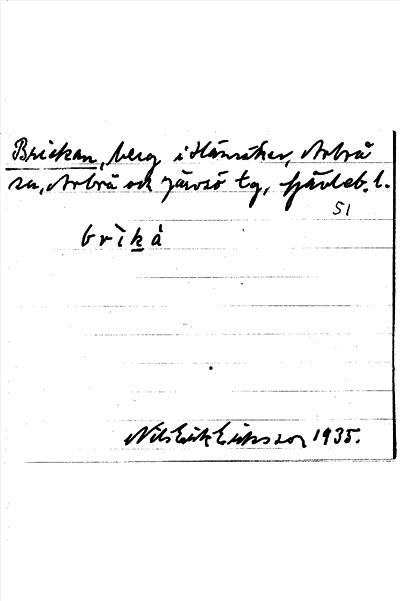 Brickan, berg i Hänsäter, Arbrå
sn, Arbrå och Järvsö tg, Gävleb. l.
51
brìkà
Nils Erik Eriksson 1935.